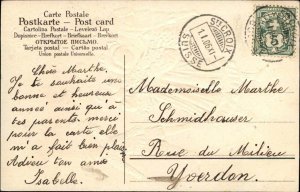 Carte Postale
Postkarte - Post card
Cartolina Postale - Levelező Lap
Dopisnice - Brefkort - Briefkaart - Brevkort
ОТКРЫТОЕ ПИСЬМО.
Tarjeta postal - Cartão postal
Union postale universelle.
STE CROIX
1.I.06
5
Chère Marthe,
Je te souhaite une
bonne et heureuse
année ainsi qu'à
tes parents. merci
pour ta carte elle
m'a fait bien plaisir
Adieu ton amie
Isabelle.
Mademoiselle Marthe
Schmidhauser
Rue du Milieu
Yverdon